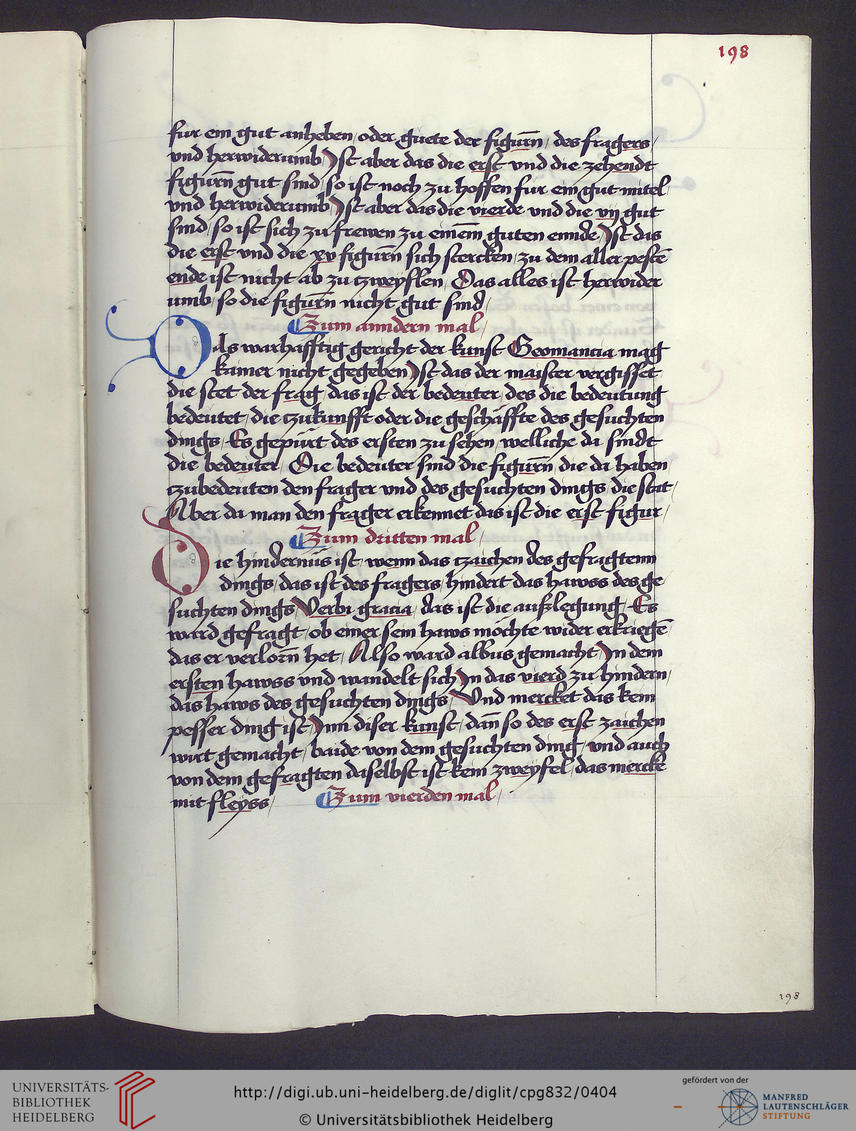 198
fur ein gut anheben / oder guete der figurn̄ / des fragers /
vnd herwiderumb / Ist aber das die erst vnd die zehendt
figurn̄ gut sind / so ist noch zu hoffen fur ein gut mitel /
vnd herwiderumb / Ist aber das die vierde vnd die vij gut
sind / so ist sich zu frewen zu einem guten ennde / Ist das
die erst vnd die xv figurn̄ sich stercken / zu dem aller pestē
ende ist nicht ab zu tzweyflen / Das alles ist herwider
umb / so die figurn̄ nicht gut sind /
Zum anndern mal /
Als warhafftig gericht der kunst Geomancia mag
kainer nicht gegeben / Ist das der maister vergisset
die stet der frag / das ist der bedeuter / des die bedeutung
bedeutet / die tzukunfft oder die geschäffte des gesuchten
dings / Es gepürt des ersten zu sehen / welliche da sindt
die bedeuter / Die bedeuter sind die figurn̄ / die da haben
tzubedeuten den frager vnd des gesuchten dings / die stat /
Aber da man den frager erkennet das ist die erst figur /
Zum dritten mal /
Die hindernüs ist / wenn das tzaichen des gefragtenn
dings / das ist des fragers / hindert das hawss des ge
suchten dings / Verbi gracia / das ist die außlegung / Es
ward gefragt / ob einer sein haws möchte wider erkriegē
das er verlorn̄ het / Also ward albus gemacht / In dem
ersten hawss vnd wandelt sich / In das vierd zu hindern /
das haws des gesuchten dings / Vnd mercket das kein
pesser ding ist / Inn diser kunst / dan̄ so des erst zaichen
wirt gemacht / baide von dem gesuchten ding / vnd auch
von dem gefragten daselbst ist kein zweyfel / das mercke
mit fleyss / Zum vierden mal /
198
UNIVERSITÄTS-
BIBLIOTHEK
HEIDELBERG
http://digi.ub.uni-heidelberg.de/diglit/cpg832/0404
© Universitätsbibliothek Heidelberg
gefördert von der
MANFRED
LAUTENSCHLÄGER
STIFTUNG